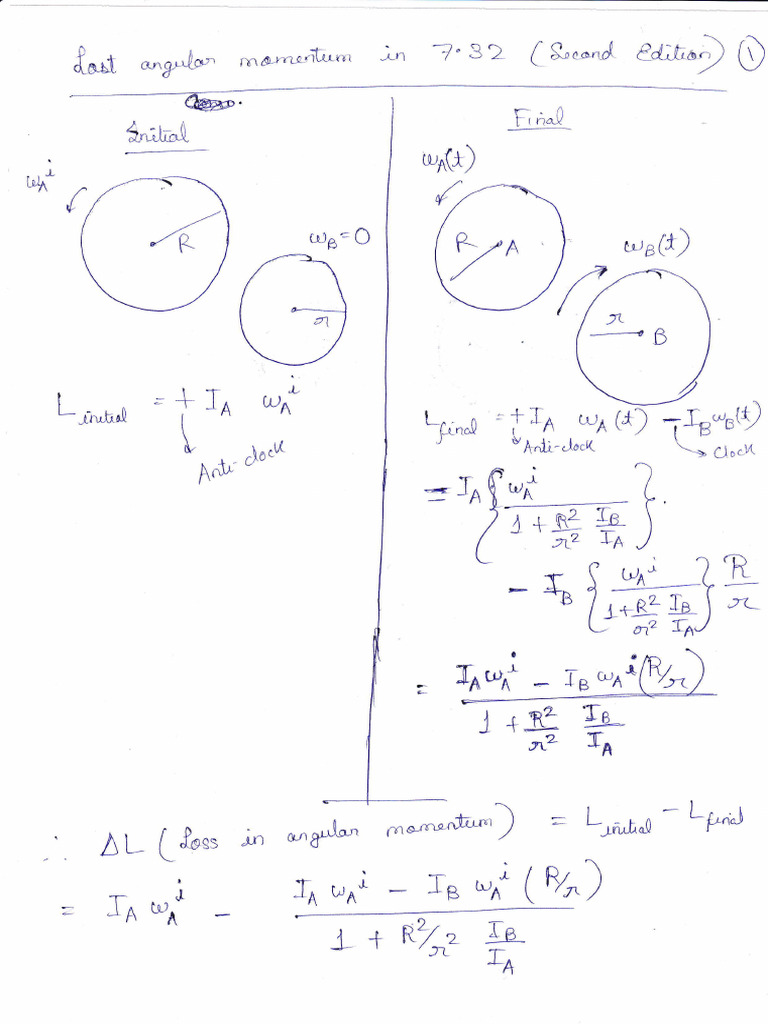 Lost angular momentum in 7.32 (Second Edition) ①
Initial
ω_A^i
R
ω_B = 0
r
L_initial = + I_A ω_A^i
Anti-clock
Final
ω_A(t)
R A
ω_B(t)
r B
L_final = + I_A ω_A(t) - I_B ω_B(t)
Anti-clock Clock
= I_A { ω_A^i / (1 + R²/r² I_B/I_A) }.
- I_B { ω_A^i / (1 + R²/r² I_B/I_A) } R/r
= (I_A ω_A^i - I_B ω_A^i (R/r)) / (1 + R²/r² I_B/I_A)
∴ ΔL (Loss in angular momentum) = L_initial - L_final
= I_A ω_A^i - (I_A ω_A^i - I_B ω_A^i (R/r)) / (1 + R²/r² I_B/I_A)